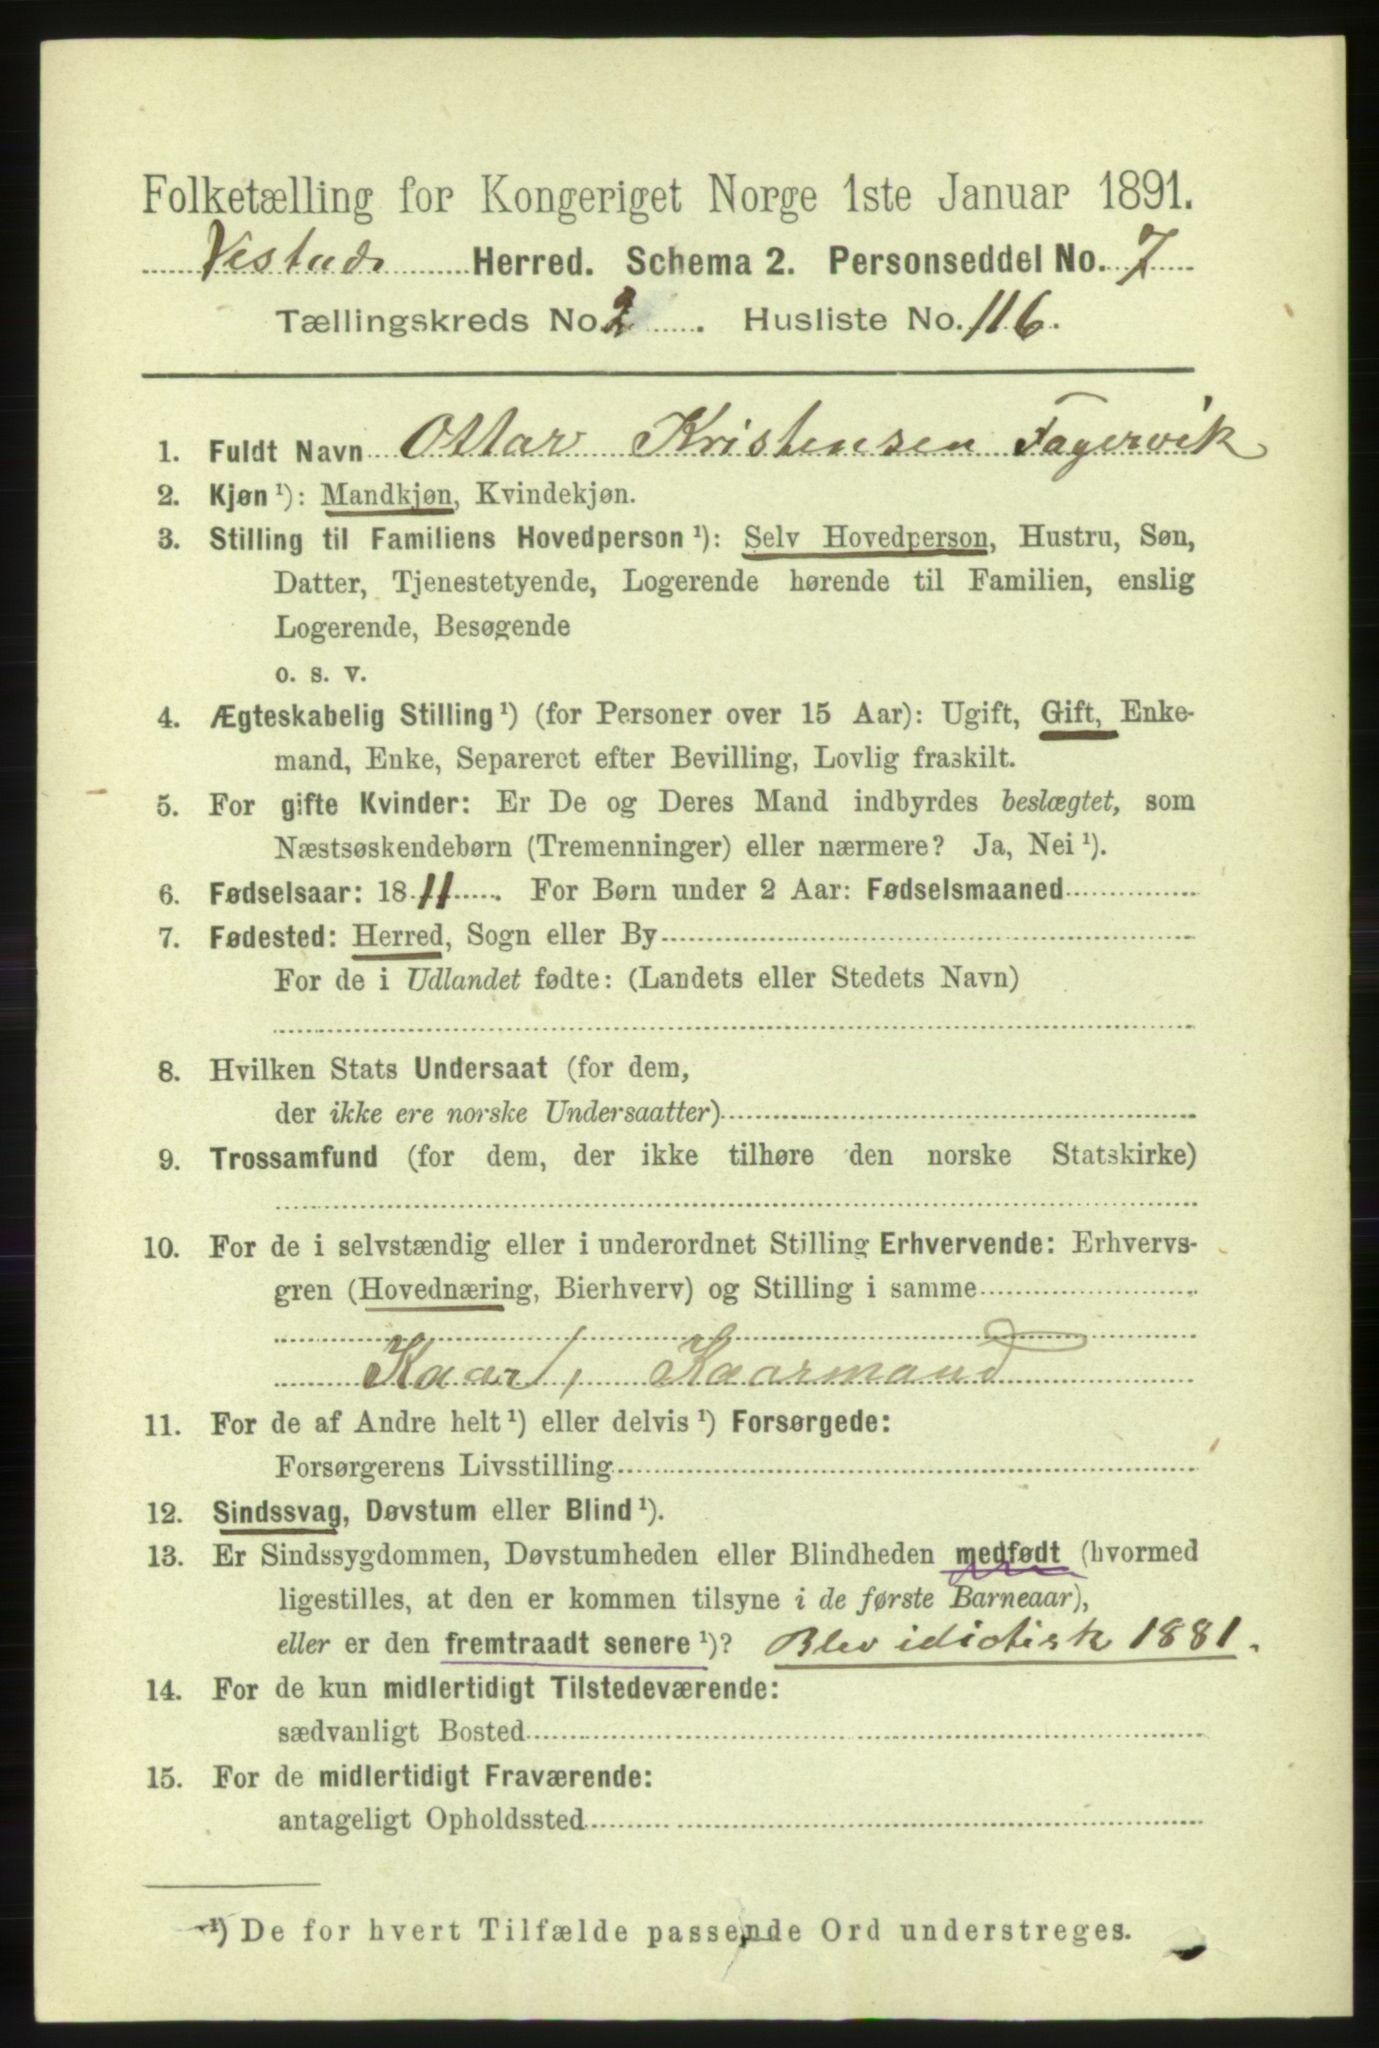 Folketælling for Kongeriget Norge 1ste Januar 1891.
Vestnæs Herred. Schema 2. Personseddel No. 7
Tællingskreds No. 2. Husliste No. 116.
1. Fuldt Navn Ottar Kristensen Fagervik
2. Kjøn ¹): Mandkjøn, Kvindekjøn.
3. Stilling til Familiens Hovedperson ¹): Selv Hovedperson, Hustru, Søn,
Datter, Tjenestetyende, Logerende hørende til Familien, enslig
Logerende, Besøgende
o. s. v.
4. Ægteskabelig Stilling ¹) (for Personer over 15 Aar): Ugift, Gift, Enke-
mand, Enke, Separeret efter Bevilling, Lovlig fraskilt.
5. For gifte Kvinder: Er De og Deres Mand indbyrdes beslægtet, som
Næstsøskendebørn (Tremenninger) eller nærmere? Ja, Nei ¹).
6. Fødselsaar: 1811. For Børn under 2 Aar: Fødselsmaaned
7. Fødested: Herred, Sogn eller By
For de i Udlandet fødte: (Landets eller Stedets Navn)
8. Hvilken Stats Undersaat (for dem,
der ikke ere norske Undersaatter)
9. Trossamfund (for dem, der ikke tilhøre den norske Statskirke)
10. For de i selvstændig eller i underordnet Stilling Erhvervende: Erhvervs-
gren (Hovednæring, Bierhverv) og Stilling i samme
Kaar, Kaarmand
11. For de af Andre helt ¹) eller delvis ¹) Forsørgede:
Forsørgerens Livsstilling
12. Sindssvag, Døvstum eller Blind ¹).
13. Er Sindssygdommen, Døvstumheden eller Blindheden medfødt (hvormed
ligestilles, at den er kommen tilsyne i de første Barneaar),
eller er den fremtraadt senere ¹)? Blev idiotisk 1881.
14. For de kun midlertidigt Tilstedeværende:
sædvanligt Bosted
15. For de midlertidigt Fraværende:
antageligt Opholdssted
¹) De for hvert Tilfælde passende Ord understreges.